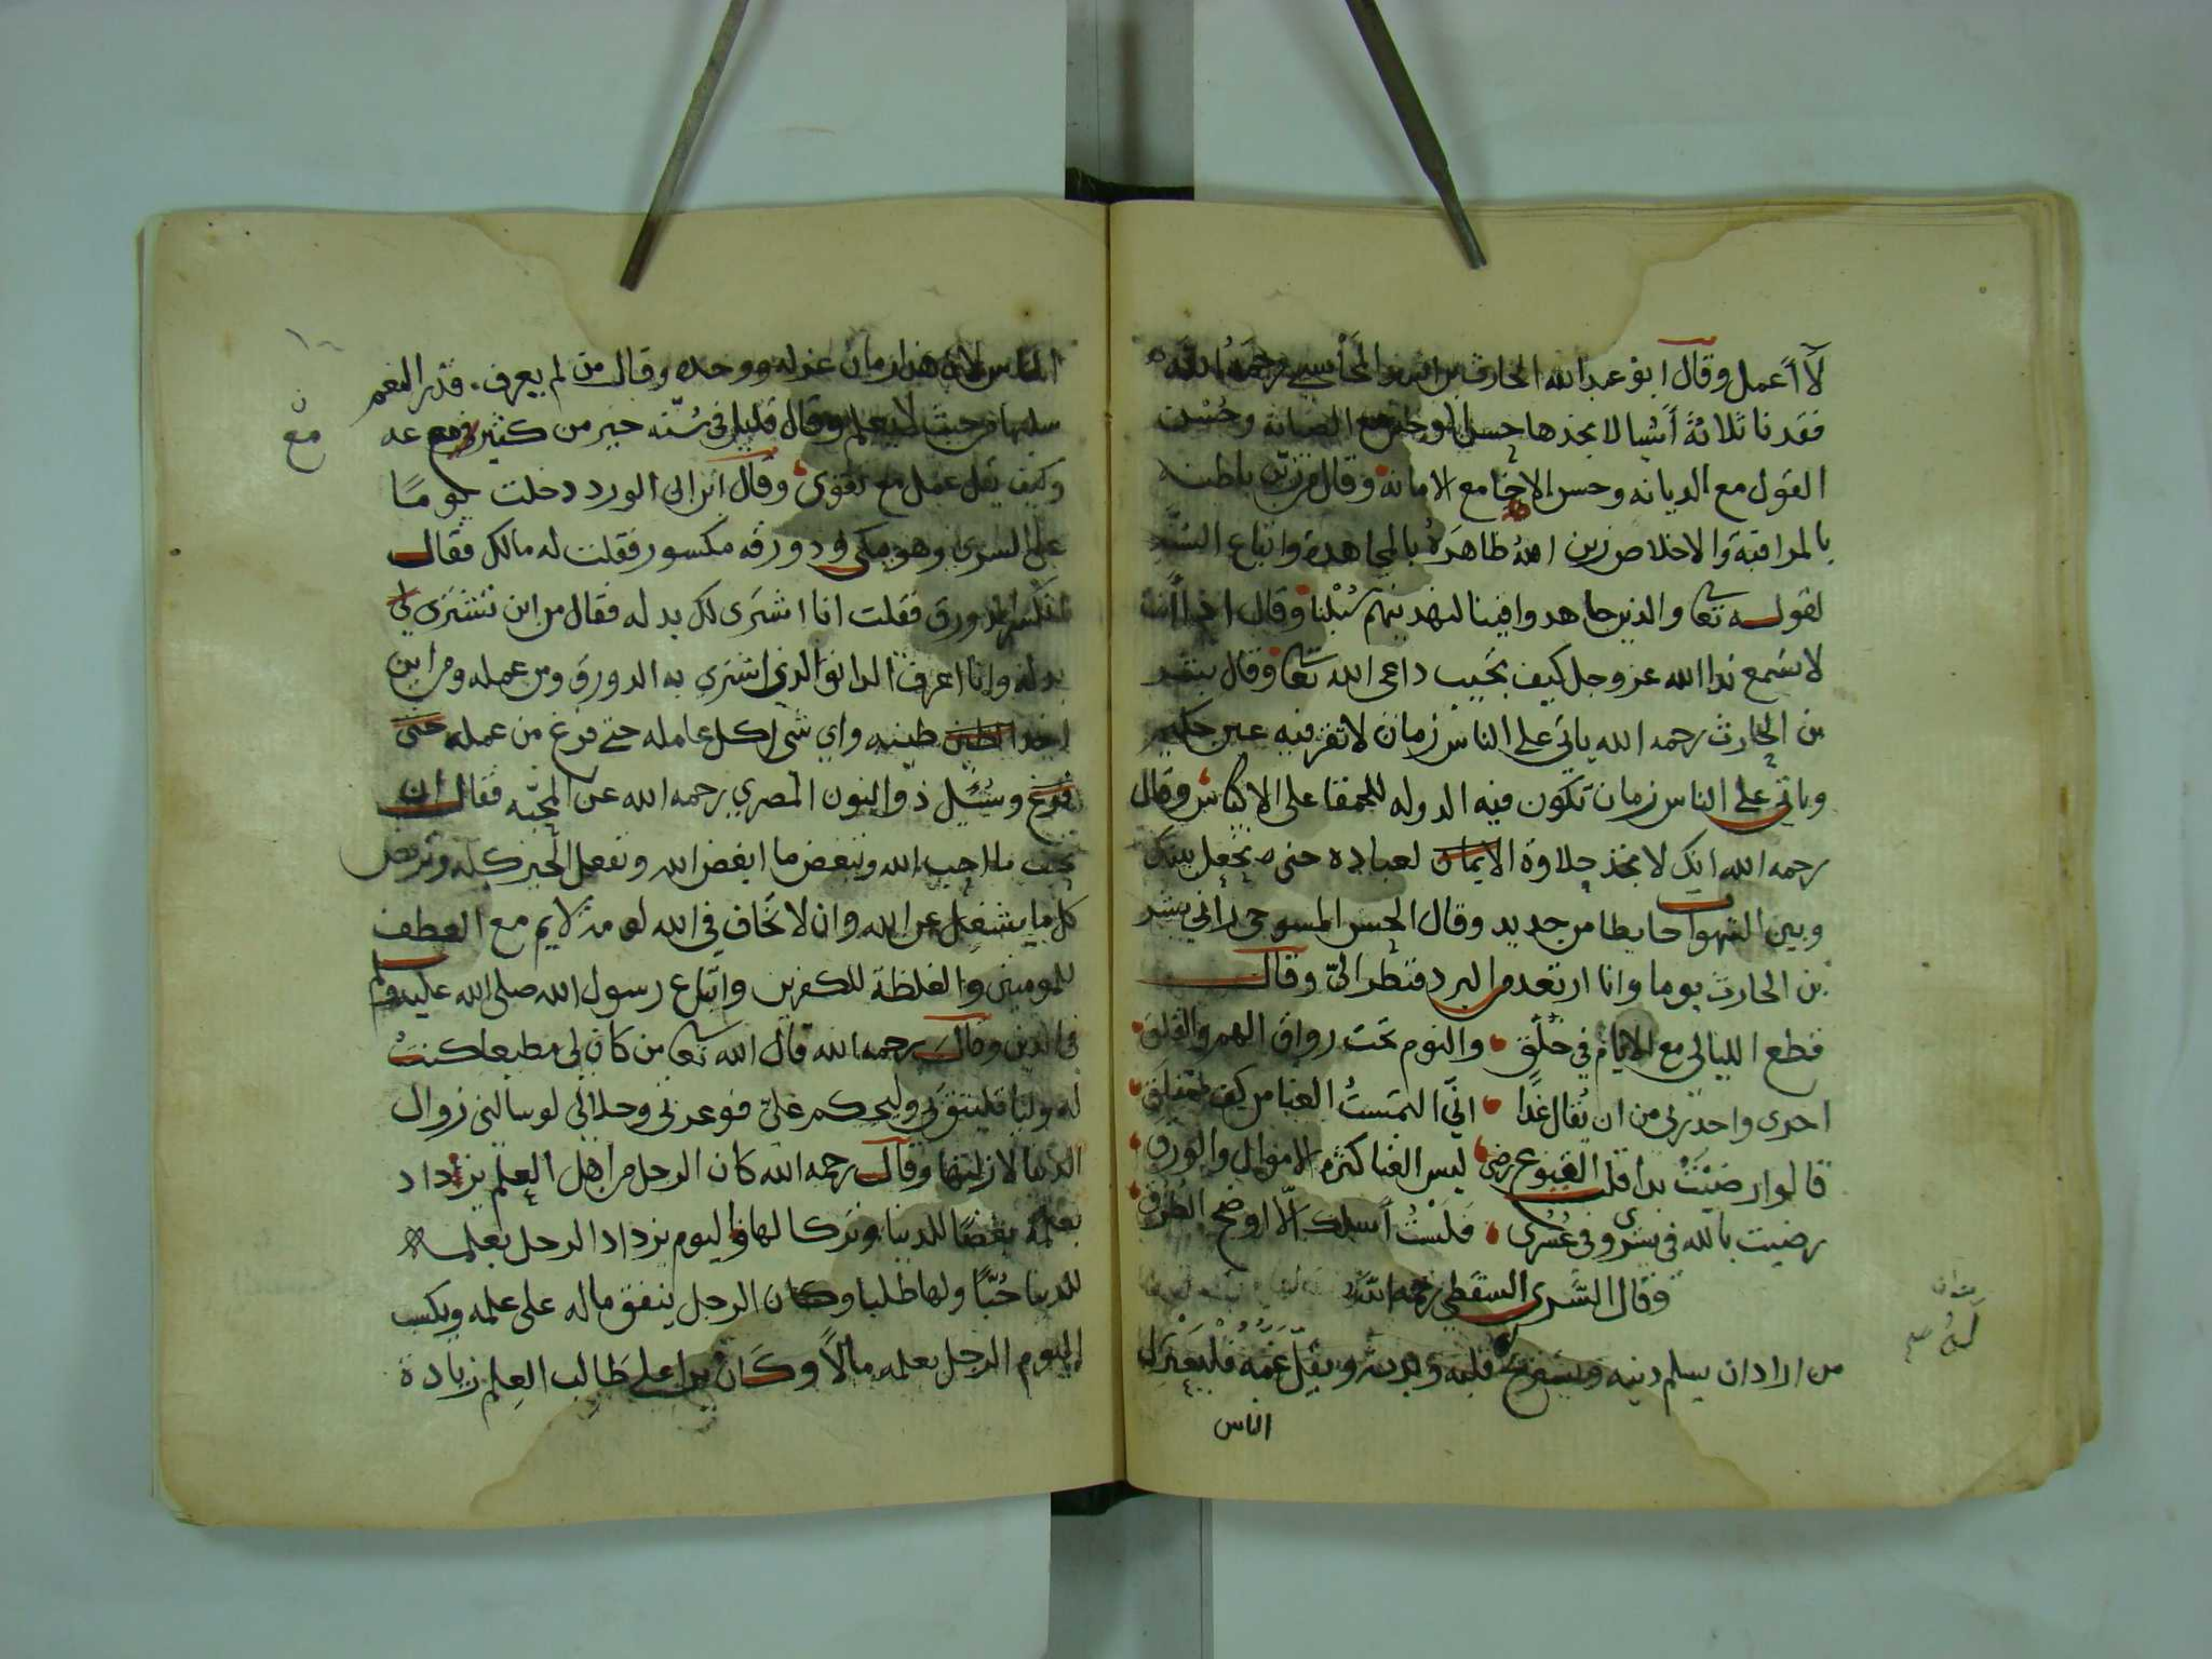 لا أعمل وقال ابو عبد الله الحارث بن اسد المحاسبي رحمه الله
فقدنا ثلاثة أشيا لا نجدها حسن الوجه مع الصيانة وحسن
القول مع الديانه وحسن الاخا مع الامانة وقال من زين باطنه
بالمراقبة والاخلاص زين الله ظاهره بالمجاهدة واتباع السنة
لقوله تعا والذين جاهدوا فينا لنهدينهم سبلنا وقال
لا تسمع ندا الله عز وجل كيف تجيب داعي الله تعا وقال بشر
بن الحارث رحمه الله ياتي على الناس زمان لا تقر فيه عين حكيم
وياتي على الناس زمان تكون فيه الدوله للحمقا على الاكياس وقال
رحمه الله انك لا تجد حلاوة الايمان لعباده حتى تجعل بينك
وبين الشهوات حايطا من حديد وقال الحسن المسوحي راني بشر
بن الحارث يوما وانا ارتعد من البرد فنظر الي وقال
قطع الليالي مع الايام في خلق والنوم تحت رواق الهم والقلق
احرى واحذر لي من ان يقال غدا اني التمست الغنا من كف مختلق
قالوا رضيت بذا قلت القنوع رضى ليس الغنا كثرة الاموال والورق
رضيت بالله في يسري وفي عسري فلست أسلك الا اوضح الطرق
وقال السري السقطي رحمه الله
من اراد ان يسلم دينه ويستريح قلبه وبدنه ويقل غمه فليعتزل
الناس
الناس لان هذا زمان عزله ووحده وقال من لم يعرف قدر النعم
سلبها من حيث لا يعلم وقال قليل في سنه خير من كثير مع
وكيف يقل عمل مع تقوى وقال ابن ابي الورد دخلت يوما
على السري وهو يبكي ودورقه مكسور فقلت له مالك فقال
انكسر الدورق فقلت انا اشتري لك بدله فقال من اين تشتري لي
بدله وانا اعرف الدانق الذي اشتري به الدورق ومن عمله ومن اين
اخذ الطين طينه واي شي اكل عامله حتى فرغ من عمله حتى
فرغ وسئل ذو النون المصري رحمه الله عن المحبه فقال ان
تحب ما احب الله وتبغض ما ابغض الله وتفعل الخير كله وترفض
كل ما يشغل عن الله وان لا تخاف في الله لومة لايم مع العطف
للمومنين والغلظة للكفرين واتباع رسول الله صلى الله عليه وسلم
في الدين وقال رحمه الله قال الله تعا من كان لي مطيعا كنت
له وليا فليثق بي وليحكم علي فوعزتي وجلالي لو سالني زوال
الدنيا لازلتها وقال رحمه الله كان الرجل من اهل العلم يزداد
بعلمه بغضا للدنيا وتركا لها واليوم يزداد الرجل بعلمه
للدنيا حبا ولها طلبا وكان الرجل ينفق ماله على علمه ويكسب
اليوم الرجل بعلمه مالا وكان يرا على طالب العلم زيادة